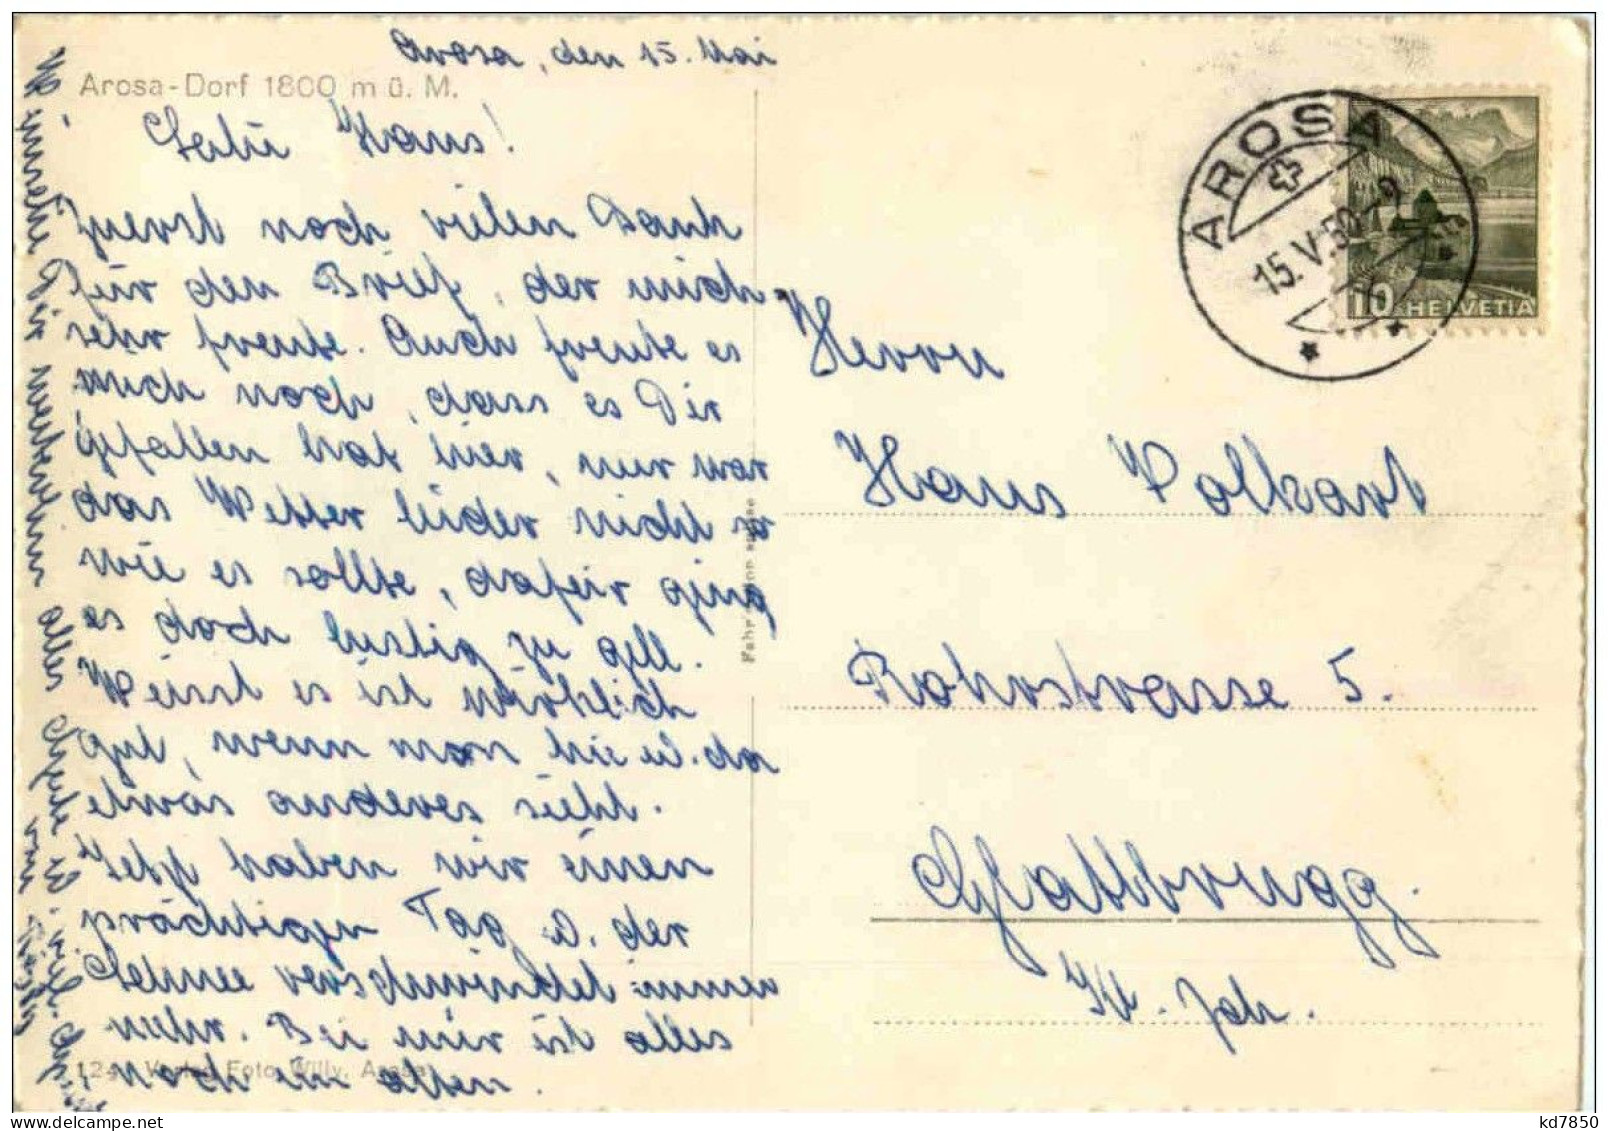 Arosa, den 15. Mai
Arosa-Dorf 1800 m ü. M.
Hans!
Zuerst noch vielen Dank
für den Brief, der mich
sehr freute. Auch freute es
mich noch, dass es Dir
gefallen hat hier, nur war
das Wetter leider nicht so
wie es sollte, dafür ging
es doch lustig zu gell.
Weisst es ist wirklich
gut, wenn man hie u. da
etwas anderes sieht.
Jetzt haben wir einen
prächtigen Tag u. der
Schnee verschwindet immer
mehr. Bei mir ist alles
noch im alten.
alles Gute u.
AROSA
15.V.50-9
10 HELVETIA
Herrn
Hans Volkart
Rohrstrasse 5.
Glattbrugg.
Kt. Zch.
Verlag Foto Willy, Arosa